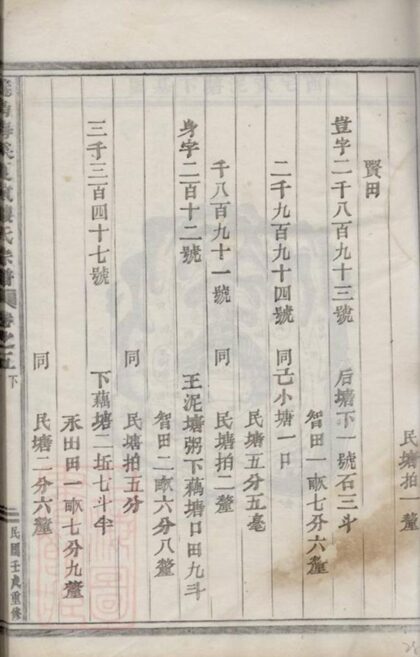 民塘拍一釐
賢田
荳字二千八百九十三號　后塘下一號石三斗
智田一畝七分六釐
二千九百九十四號　同亡小塘一口
民塘五分五毫
千八百九十一號　同　民塘拍二釐
身字二百十二號　王泥塘粥下藕塘口田九斗
智田二畝六分八釐
同　民塘拍五分
三千三百四十七號　下藕塘二坵七斗半
永田田一畝七分九釐
同　民塘二分六釐
氏宗譜
卷之五
下
民國壬戌重修